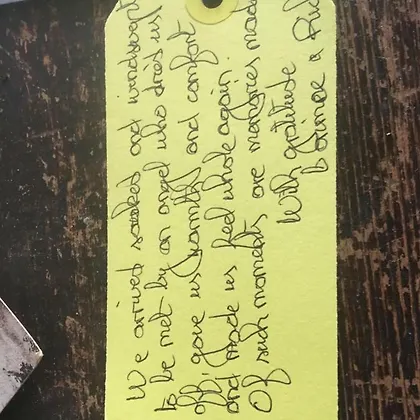 We arrived soaked and windswept
to be met by an angel who dries us
off, gave us warmth and comfort
and made us feel whole again.
Of such moments are memories made
With gratitude